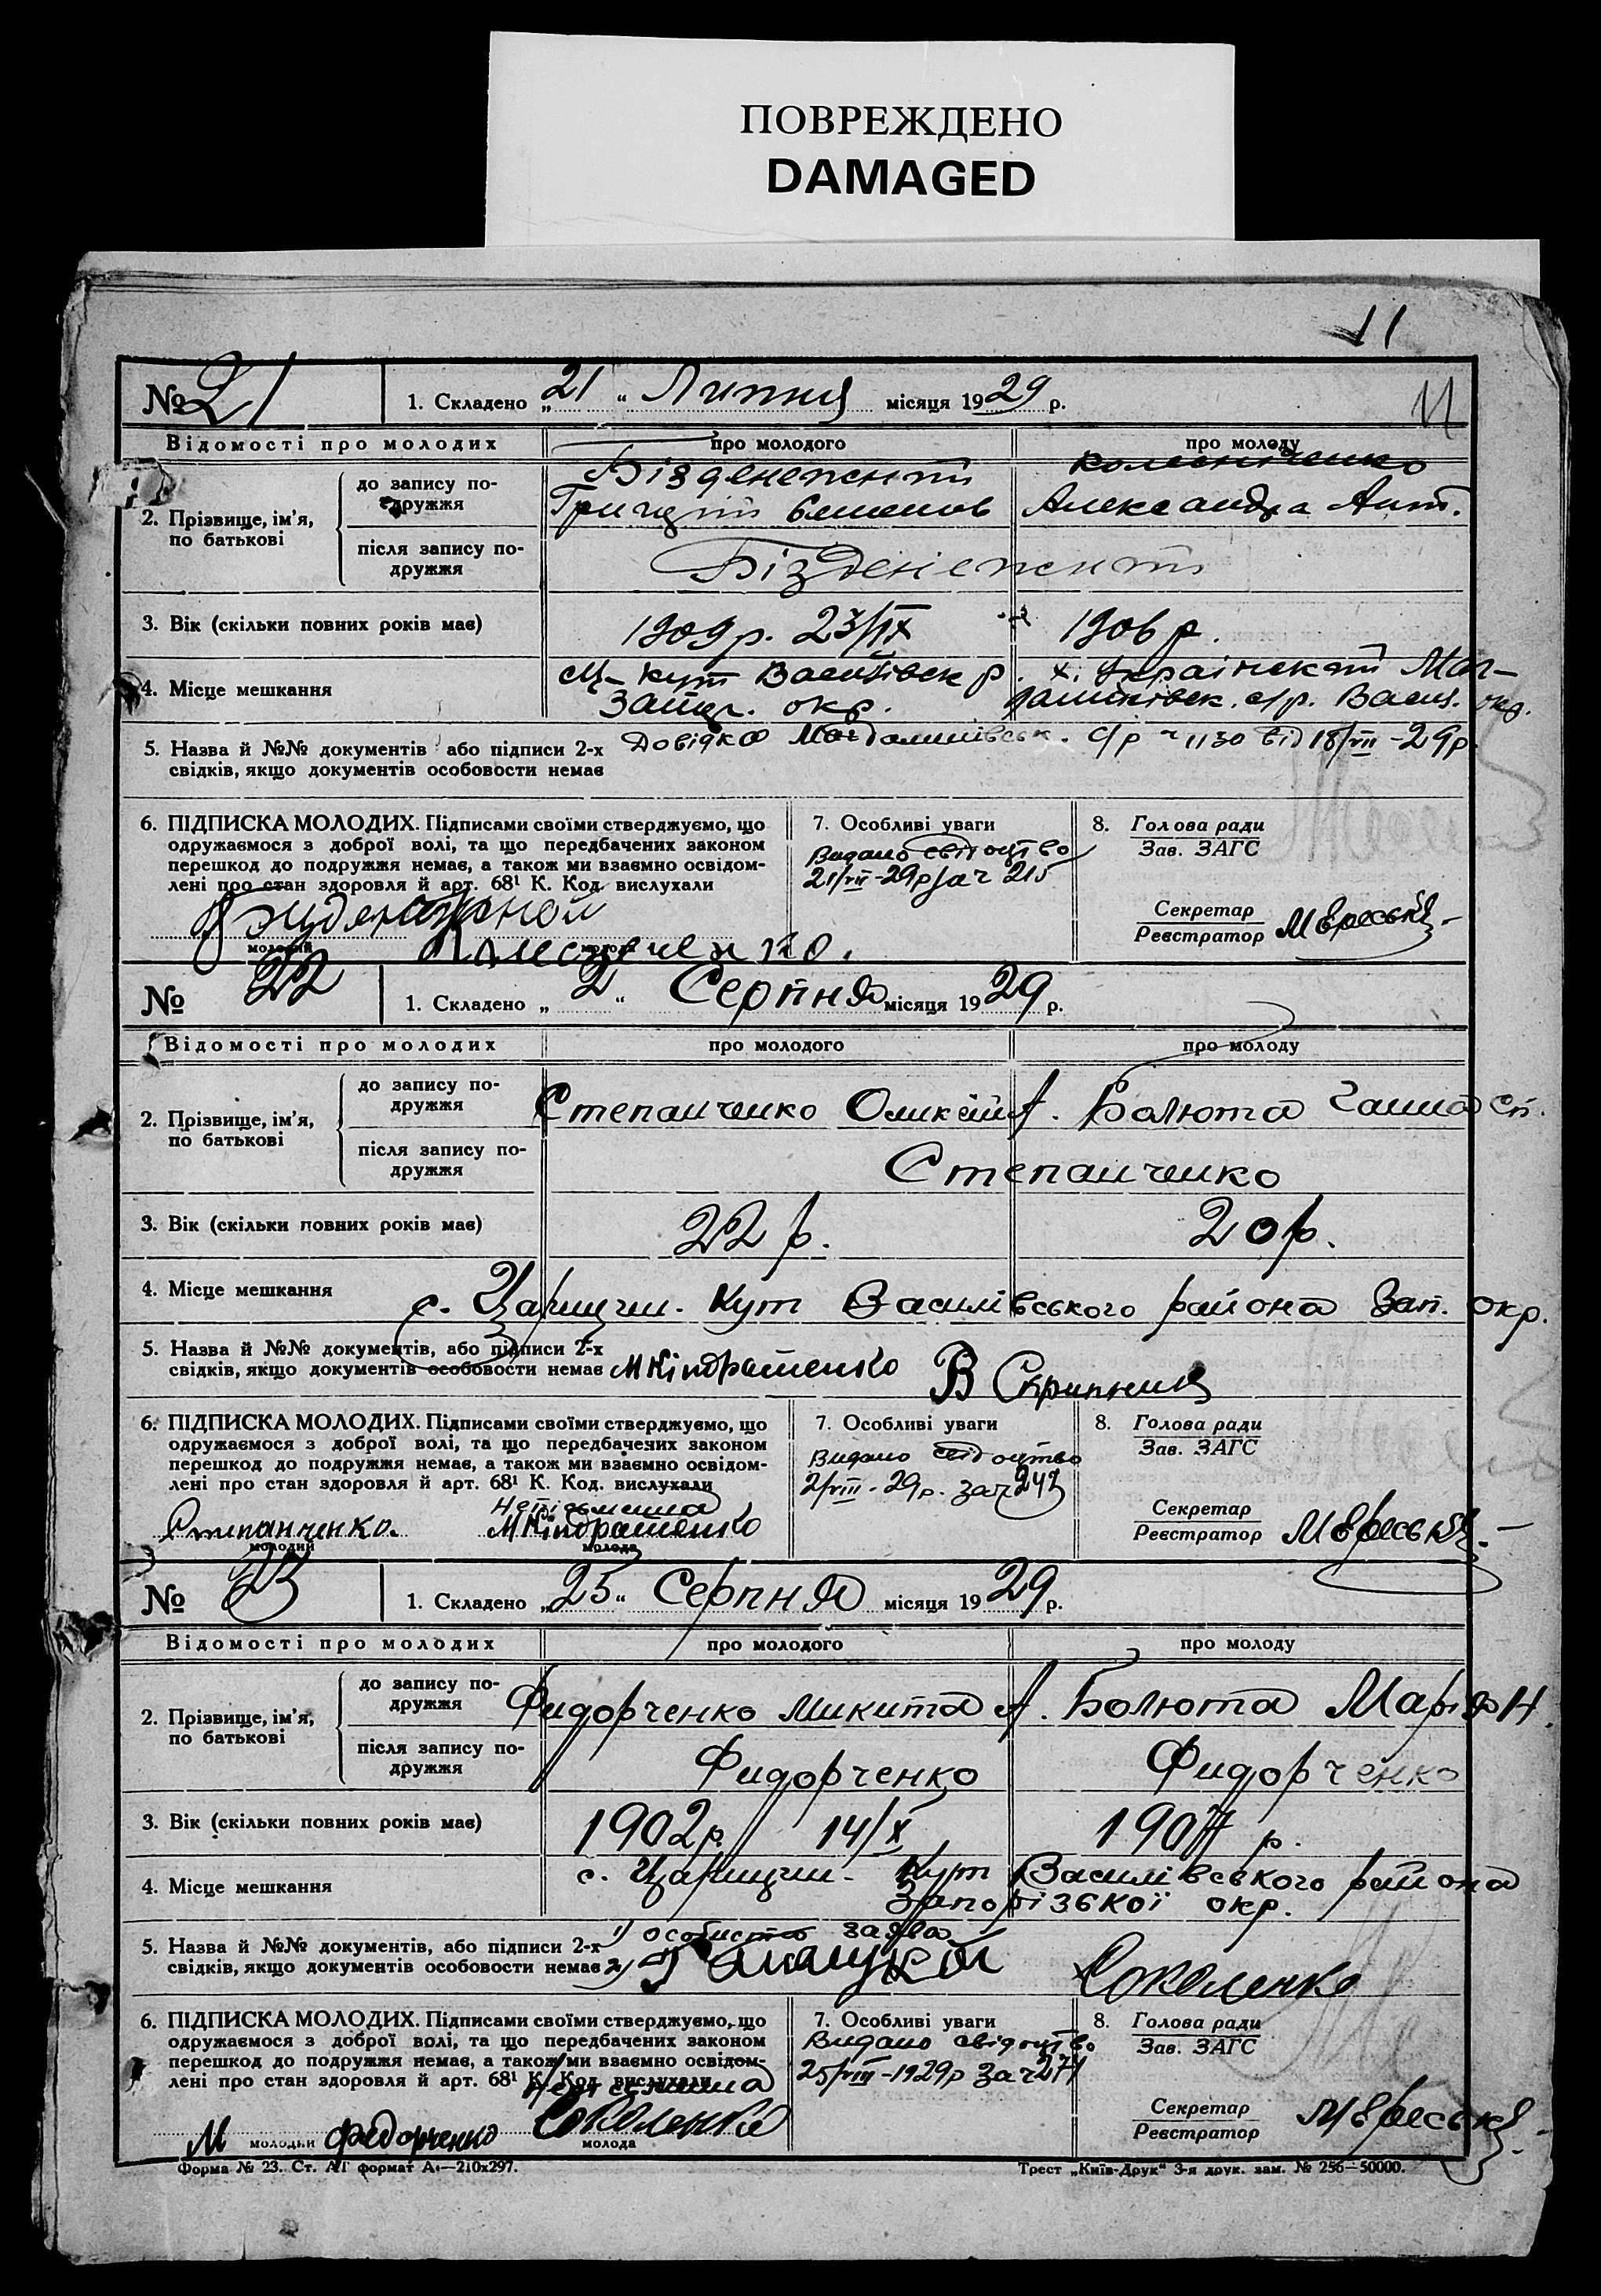 ПОВРЕЖДЕНО
DAMAGED
11
11
№ 21 1. Складено „21“ Липня місяця 1929 р.
Відомості про молодих про молодого про молоду
2. Прізвище, ім'я, по батькові
до запису подружжя Бізденежний Колесніченко
Григорій Александра Ант.
після запису подружжя Бізденежний
3. Вік (скільки повних років має) 1909 р. 23/IX 1906 р.
4. Місце мешкання Ц-Кут Василівск р. х. Український Маг-
Запор. окр. далинівск. с/р. Васил. окр.
5. Назва й №№ документів або підписи 2-х Довідка Магдалинівськ. с/р ч 1130 від 18/VII-29р.
свідків, якщо документів особовости немає
6. ПІДПИСКА МОЛОДИХ. Підписами своїми стверджуємо, що
одружаємося з доброї волі, та що передбачених законом
перешкод до подружжя немає, а також ми взаємно освідом-
лені про стан здоров'я й арт. 68¹ К. Код. вислухали
молодий
молода
7. Особливі уваги
Видано свідоцтво
21/VII-29р за ч 215
8. Голова ради
Зав. ЗАГС
Секретар
Реєстратор
№ 22 1. Складено „2“ Серпня місяця 1929 р.
Відомості про молодих про молодого про молоду
2. Прізвище, ім'я, по батькові
до запису подружжя Степанченко А. Болюта Ганна Сп.
після запису подружжя Степанченко
3. Вік (скільки повних років має) 22 р. 20 р.
4. Місце мешкання с. Царицин. Кут Василівського района Зап. окр.
5. Назва й №№ документів, або підписи 2-х
свідків, якщо документів особовости немає М Кіндрашенко В Скрипник
6. ПІДПИСКА МОЛОДИХ. Підписами своїми стверджуємо, що
одружаємося з доброї волі, та що передбачених законом
перешкод до подружжя немає, а також ми взаємно освідом-
лені про стан здоров'я й арт. 68¹ К. Код. вислухали
неписьменна
Степанченко. М Кіндрашенко
молодий молода
7. Особливі уваги
Видано свідоцтво
2/VIII-29р. за ч 242
8. Голова ради
Зав. ЗАГС
Секретар
Реєстратор
№ 23 1. Складено „25“ Серпня місяця 1929 р.
Відомості про молодих про молодого про молоду
2. Прізвище, ім'я, по батькові
до запису подружжя Фидорченко Микита А. Болюта Марія Н.
після запису подружжя Фидорченко Фидорченко
3. Вік (скільки повних років має) 1902 р. 14/X 1907 р.
4. Місце мешкання с. Царицин. Кут Василівського района
Запорізької окр.
5. Назва й №№ документів, або підписи 2-х 1) особиста заява
свідків, якщо документів особовости немає 2) Соколенко
6. ПІДПИСКА МОЛОДИХ. Підписами своїми стверджуємо, що
одружаємося з доброї волі, та що передбачених законом
перешкод до подружжя немає, а також ми взаємно освідом-
лені про стан здоров'я й арт. 68¹ К. Код. вислухали
неписьменна
М Федорченко Соколенко
молодий молода
7. Особливі уваги
Видано свідоцтво
25/VIII-1929р за ч 274
8. Голова ради
Зав. ЗАГС
Секретар
Реєстратор
Форма № 23. Ст. АТ формат А₄—210х297.
Трест „Київ-Друк“ 3-я друк. зам. № 256—50000.